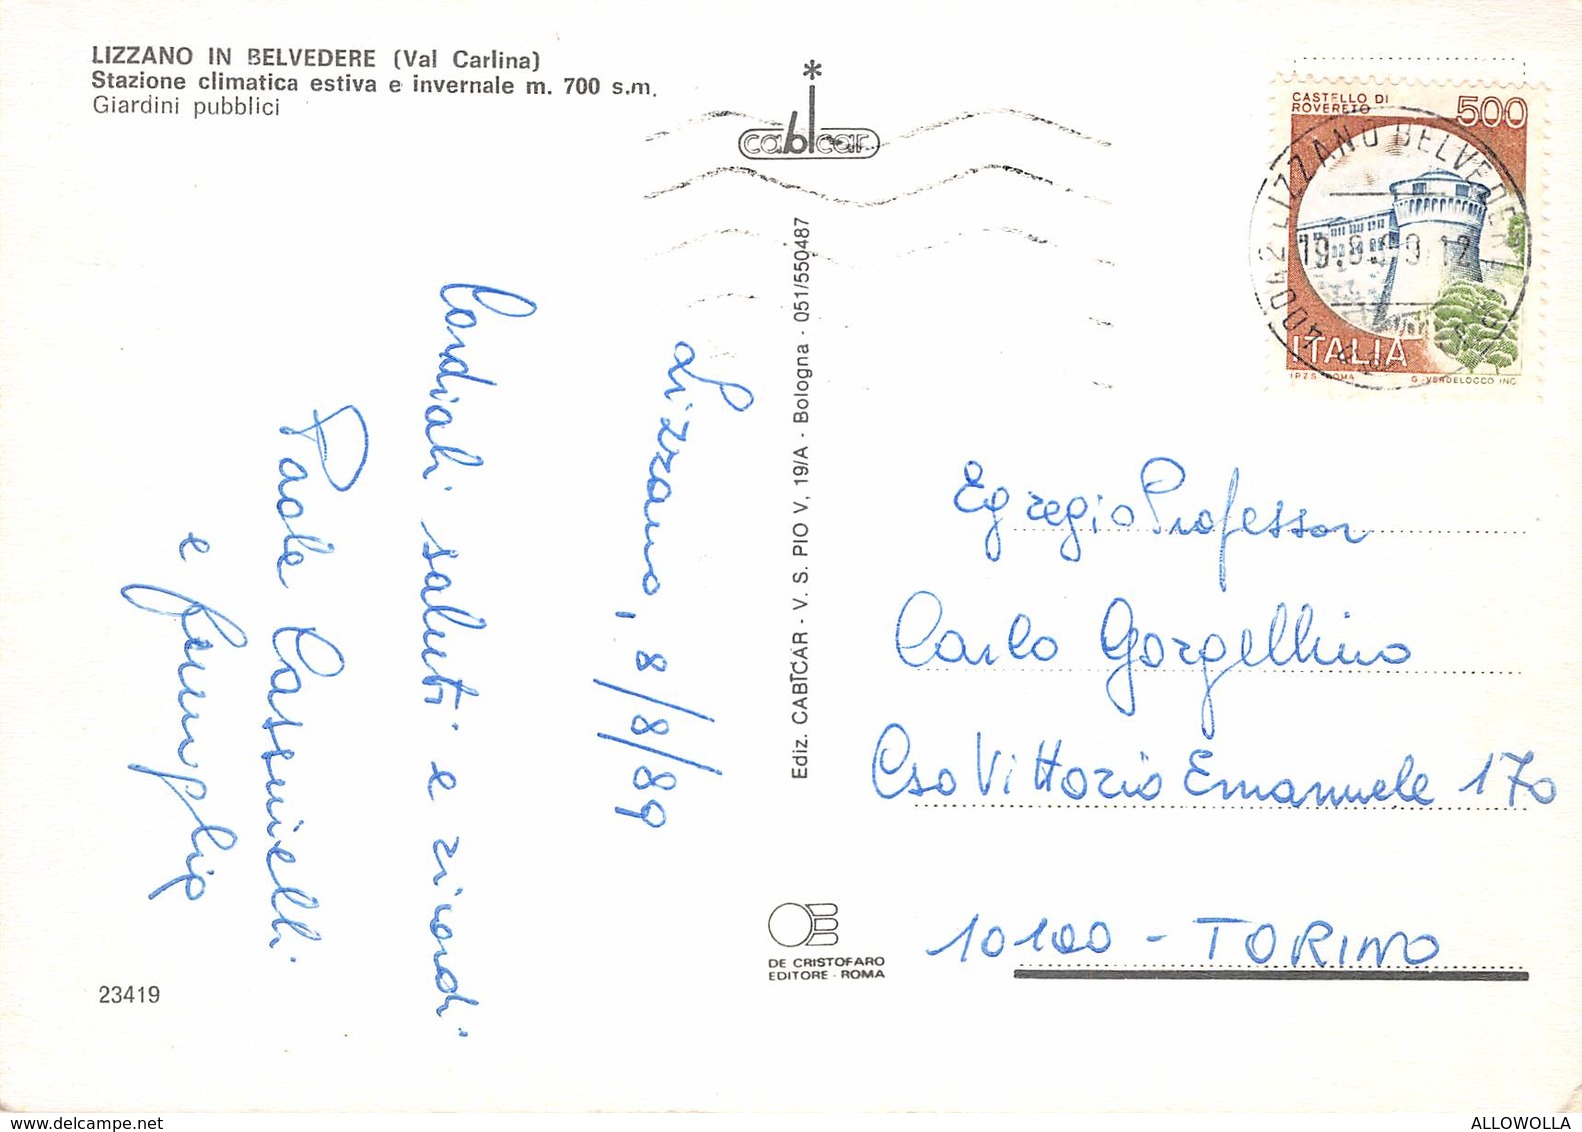 LIZZANO IN BELVEDERE (Val Carlina)
Stazione climatica estiva e invernale m. 700 s.m.
Giardini pubblici
cabicar
CASTELLO DI
ROVERETO
500
40042 LIZZANO BELVEDERE
19.8.89.12
ITALIA
I.P.Z.S. ROMA G. VERDELOCCO INC.
Lizzano, 8/8/89
Cordiali saluti e ricordi
Paola Cassinelli
e famiglia
Ediz. CABICAR - V. S. PIO V, 19/A - Bologna - 051/550487
Egregio Professor
Carlo Gorgellino
Cso Vittorio Emanuele 170
10100 - TORINO
DE CRISTOFARO
EDITORE - ROMA
23419
ALLOWOLLA